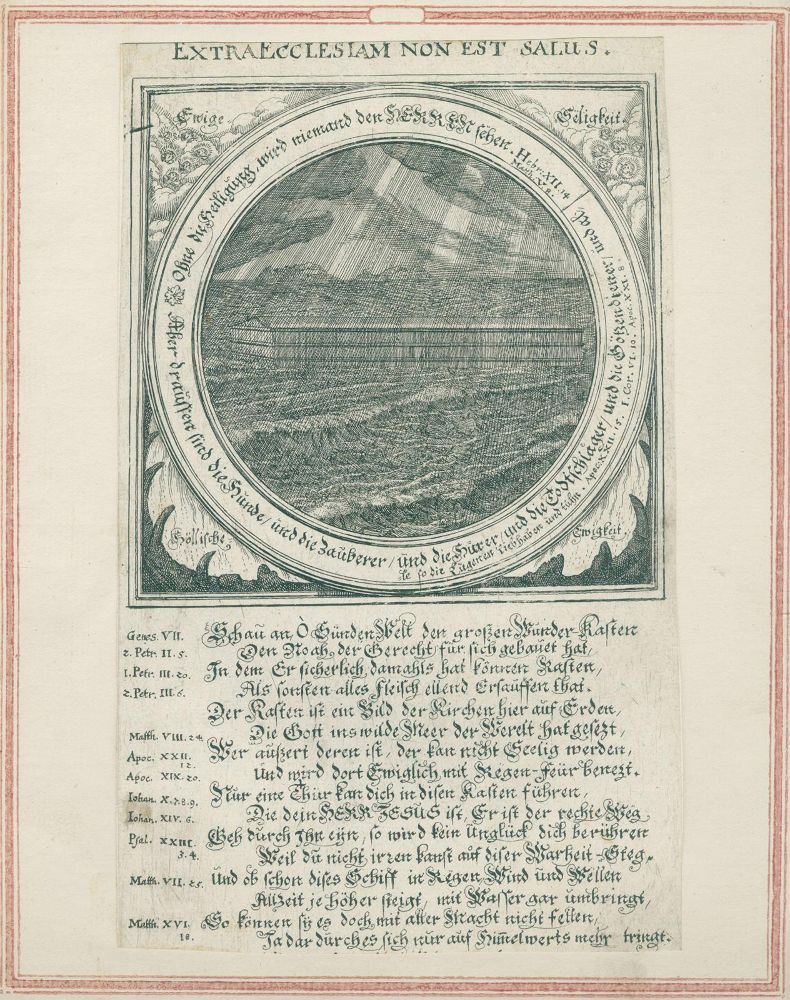 EXTRA ECCLESIAM NON EST SALUS.
Ewige
Seligkeit.
Ohne die Heiligung, wird niemand den HERREN sehen. Hebr. XII. 14
Matth. V. 8.
Aber draussen sind die Hunde/ und die Zauberer/ und die Hurer/ und die Todtschläger/ und die Götzendiener/ und al
le so die Lügenen lieb haben und tuhn Apoc. XXII. 15. I. Cor. VI. 10. Apoc. XXI. 8.
Höllische
Ewigkeit.
Genes. VII. Schau an, O Sünden Welt den großen Wunder-Kasten
2. Petr. II. 5. Den Noah, der Gerecht/ für sich gebauet hat,
1. Petr. III. 20. In dem Er sicherlich damahls hat können Rasten,
2. Petr. III. 6. Als sonsten alles Fleisch ellend Ersauffen that.
Der Kasten ist ein Bild der Kirchen hier auf Erden,
Matth. VIII. 24. Die Gott ins wilde Meer der Werelt hat gesetzt,
Apoc. XXII. 12. Wer außert deren ist, der kan nicht Seelig werden,
Apoc. XIX. 20. Und wird dort Ewiglich mit Regen-Feür benetzt.
Iohan. X. 7. 8. 9. Nur eine Thür kan dich in disen Kasten führen,
Iohan. XIV. 6. Die dein HERR JESUS ist, Er ist der rechte Weg
Psal. XXIII. 3. 4. Geh durch Ihn eyn, so wird kein Unglück dich berühren
Weil du nicht irren kanst auf diser Warheit-Steg.
Matth. VII. 25. Und ob schon dises Schiff in Regen, Wind und Wellen
Allzeit je höher steigt, mit Wasser gar umbringt,
Matth. XVI. 18. So können sÿ es doch mit aller Macht nicht fellen,
Ja dardurch es sich nur auf Himelwerts mehr tringt.